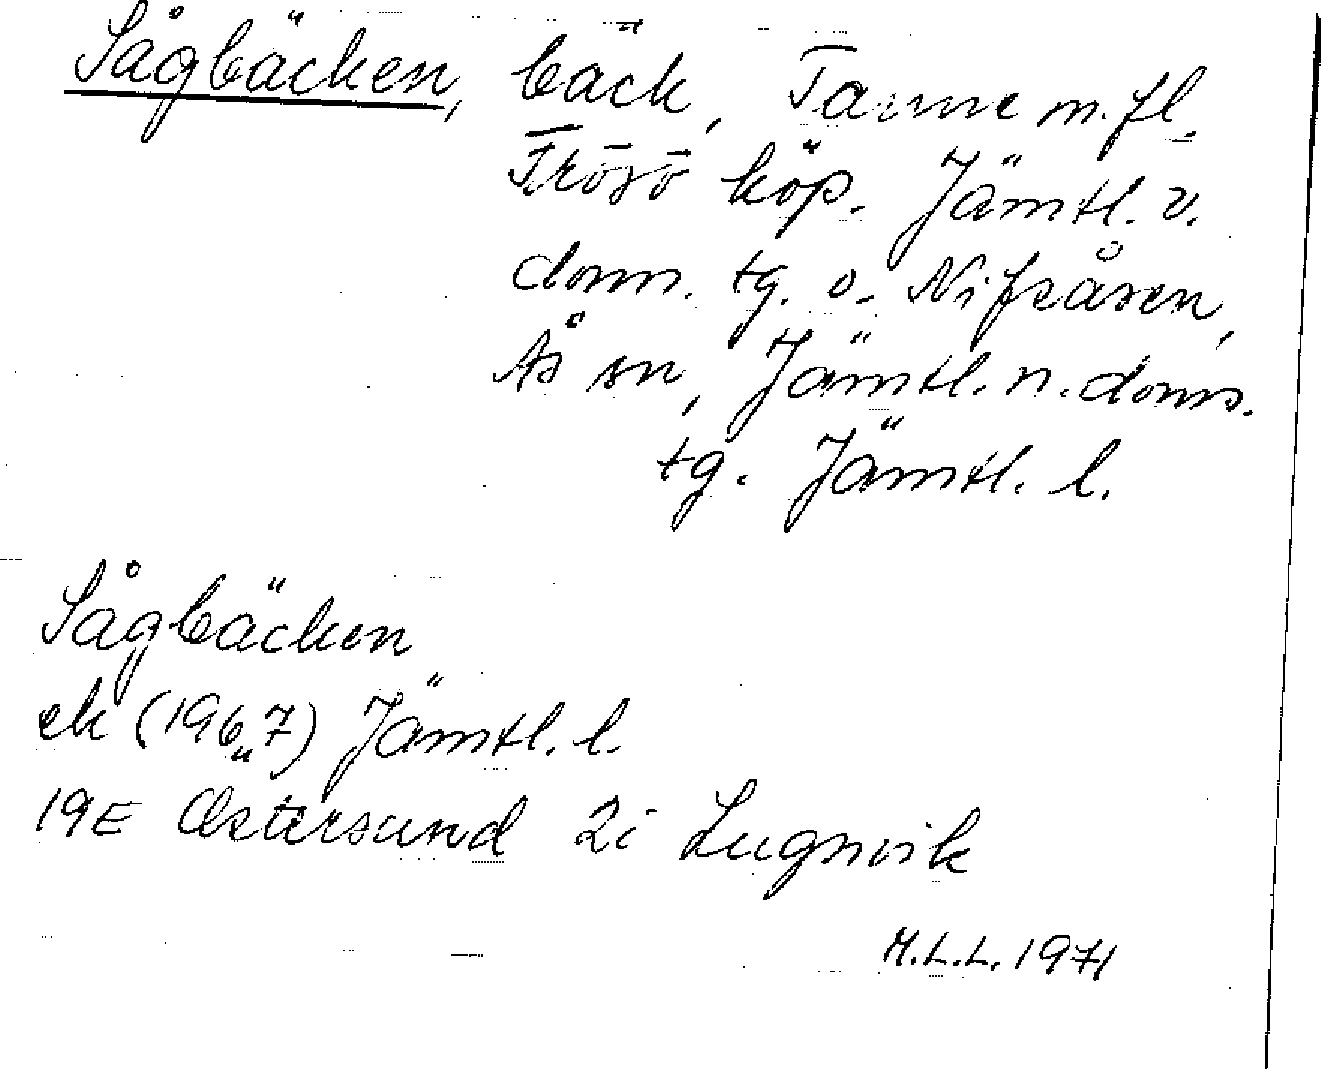 Sågbäcken, bäck, Tanne m.fl.
Frösö köp. Jämtl. v.
doms. tg. o. Nifsåsen,
Ås sn, Jämtl. n. doms.
tg. Jämtl. l.
Sågbäcken
ek (1967) Jämtl. l.
19E Östersund 2i Lugnvik
M.L.L. 1971